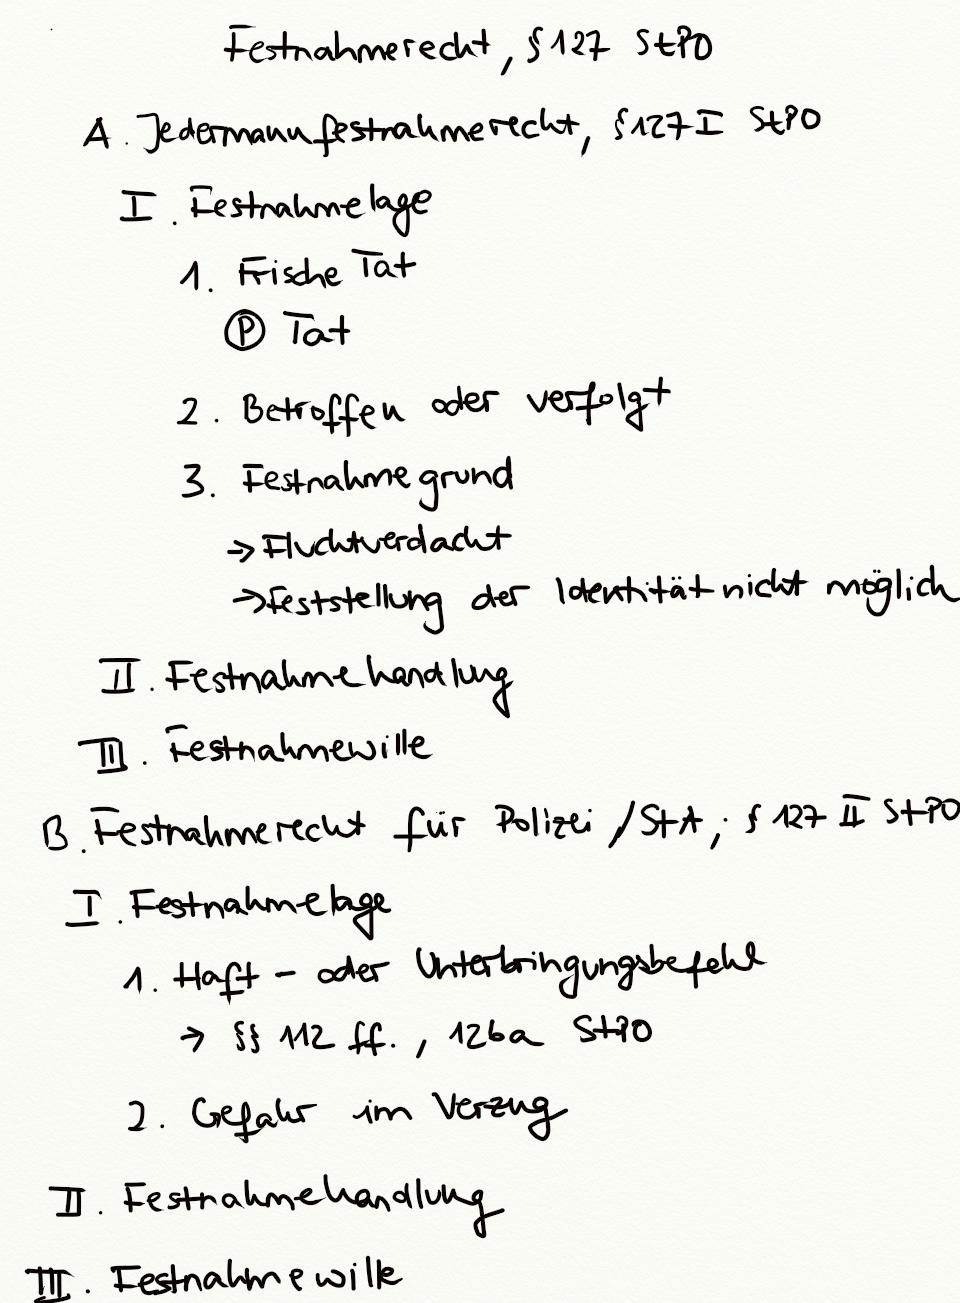 Festnahmerecht, § 127 StPO
A. Jedermannfestnahmerecht, § 127 I StPO
I. Festnahmelage
1. Frische Tat
Ⓟ Tat
2. Betroffen oder verfolgt
3. Festnahmegrund
→ Fluchtverdacht
→ Feststellung der Identität nicht möglich
II. Festnahmehandlung
III. Festnahmewille
B. Festnahmerecht für Polizei / StA, § 127 II StPO
I. Festnahmelage
1. Haft- oder Unterbringungsbefehl
→ §§ 112 ff., 126a StPO
2. Gefahr im Verzug
II. Festnahmehandlung
III. Festnahmewille